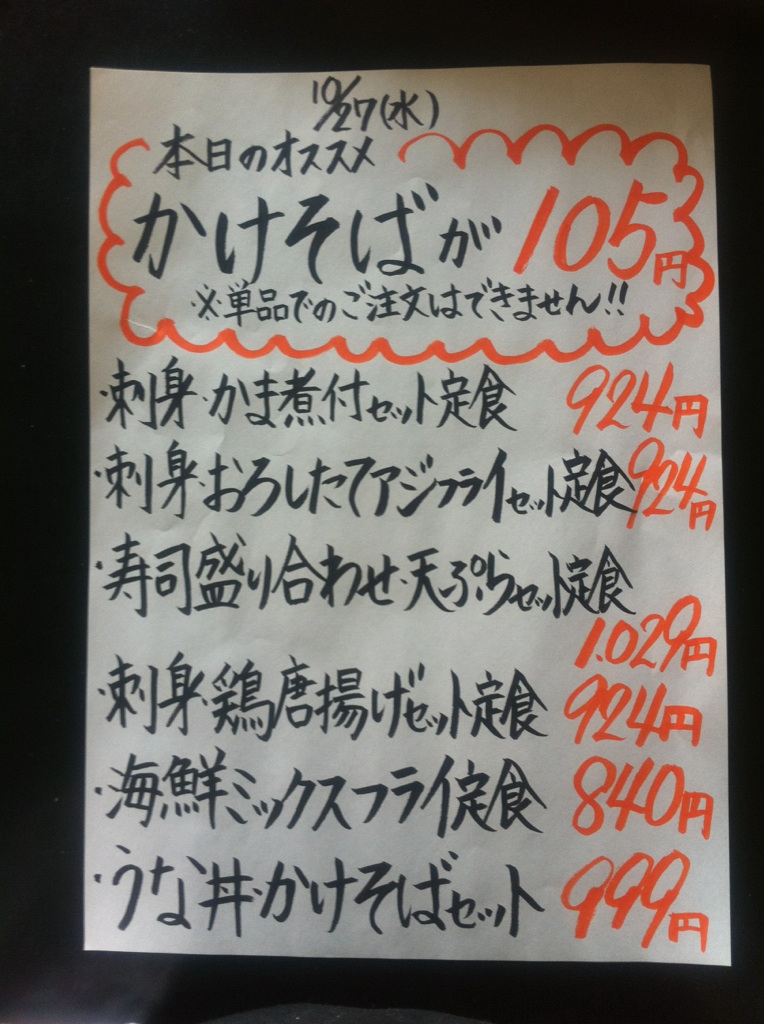 10/27(水)
本日のオススメ
かけそばが105円
※単品でのご注文はできません!!
・刺身・かま煮付セット定食 924円
・刺身・おろしたてアジフライセット定食 924円
・寿司盛り合わせ・天ぷらセット定食
1.029円
・刺身・鶏唐揚げセット定食 924円
・海鮮ミックスフライ定食 840円
・うな丼・かけそばセット 999円